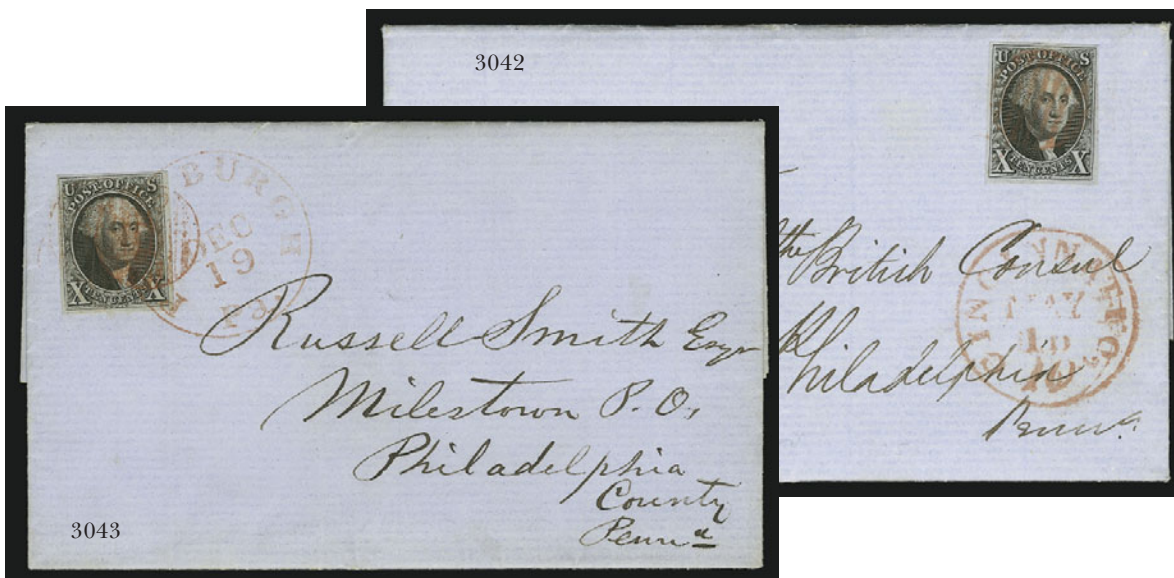 3042
U S
POST OFFICE
X TEN CENTS X
the British Consul
Philadelphia
Penna.
CINCINNATI O.
MAY
10
3043
U S
POST OFFICE
X TEN CENTS X
BURGH PA
DEC
19
Russell Smith Esqr
Milestown P. O.,
Philadelphia
County
Penna